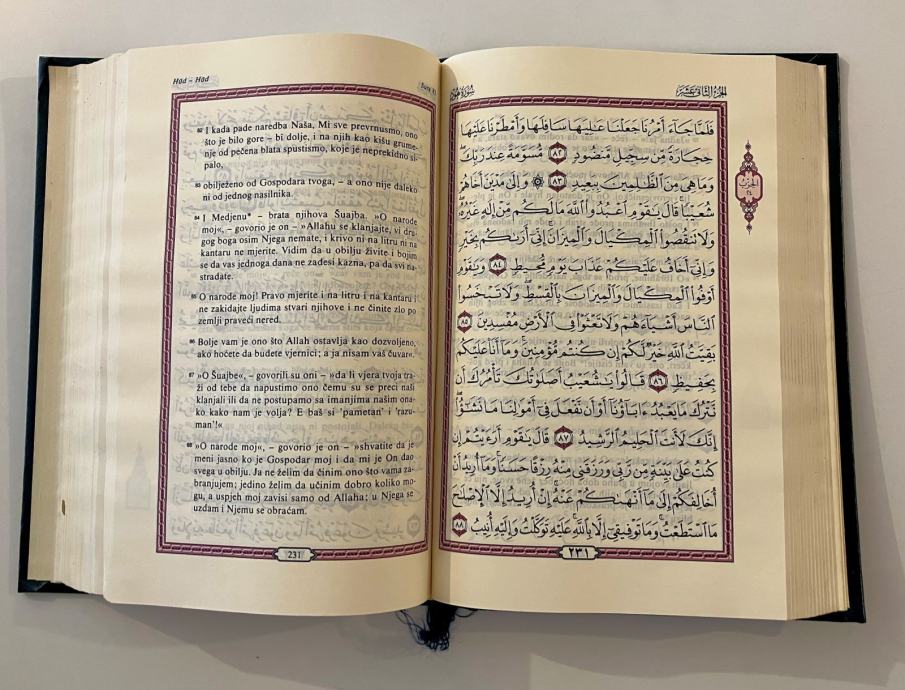 Hūd – Hūd
Sura 11
82 I kada pade naredba Naša, Mi sve prevrnusmo, ono
što je bilo gore – bi dolje, i na njih kao kišu grume-
nje od pečena blata spustismo, koje je neprekidno si-
palo,
83 obilježeno od Gospodara tvoga, – a ono nije daleko
ni od jednog nasilnika.
84 I Medjenu* – brata njihova Šuajba. »O narode
moj«, – govorio je on – »Allahu se klanjajte, vi dru-
gog boga osim Njega nemate, i krivo ni na litru ni na
kantaru ne mjerite. Vidim da u obilju živite i bojim
se da vas jednoga dana ne zadesi kazna, pa da svi na-
stradate.
85 O narode moj! Pravo mjerite i na litru i na kantaru i
ne zakidajte ljudima stvari njihove i ne činite zlo po
zemlji praveći nered.
86 Bolje vam je ono što Allah ostavlja kao dozvoljeno,
ako hoćete da budete vjernici; a ja nisam vaš čuvar.
87 »O Šuajbe«, – govorili su oni – »da li vjera tvoja tra-
ži od tebe da napustimo ono čemu su se preci naši
klanjali ili da ne postupamo sa imanjima našim ona-
ko kako nam je volja? E baš si 'pametan' i 'razu-
man'!«
88 »O narode moj«, – govorio je on – »shvatite da je
meni jasno ko je Gospodar moj i da mi je On dao
svega u obilju. Ja ne želim da činim ono što vama za-
branjujem; jedino želim da učinim dobro koliko mo-
gu, a uspjeh moj zavisi samo od Allaha; u Njega se
uzdam i Njemu se obraćam.
231
سُورَةُ هُودٍ
الجُزْءُ الثَّانِي عَشَر
فَلَمَّا جَآءَ أَمْرُنَا جَعَلْنَا عَٰلِيَهَا سَافِلَهَا وَأَمْطَرْنَا عَلَيْهَا
حِجَارَةً مِّن سِجِّيلٍ مَّنضُودٍ ٨٢ مُّسَوَّمَةً عِندَ رَبِّكَ ۖ
وَمَا هِىَ مِنَ ٱلظَّٰلِمِينَ بِبَعِيدٍ ٨٣ ۞ وَإِلَىٰ مَدْيَنَ أَخَاهُمْ
شُعَيْبًا ۚ قَالَ يَٰقَوْمِ ٱعْبُدُوا۟ ٱللَّهَ مَا لَكُم مِّنْ إِلَٰهٍ غَيْرُهُۥ ۖ
وَلَا تَنقُصُوا۟ ٱلْمِكْيَالَ وَٱلْمِيزَانَ ۚ إِنِّىٓ أَرَىٰكُم بِخَيْرٍ
وَإِنِّىٓ أَخَافُ عَلَيْكُمْ عَذَابَ يَوْمٍ مُّحِيطٍ ٨٤ وَيَٰقَوْمِ
أَوْفُوا۟ ٱلْمِكْيَالَ وَٱلْمِيزَانَ بِٱلْقِسْطِ ۖ وَلَا تَبْخَسُوا۟
ٱلنَّاسَ أَشْيَآءَهُمْ وَلَا تَعْثَوْا۟ فِى ٱلْأَرْضِ مُفْسِدِينَ ٨٥
بَقِيَّتُ ٱللَّهِ خَيْرٌ لَّكُمْ إِن كُنتُم مُّؤْمِنِينَ ۚ وَمَآ أَنَا۠ عَلَيْكُم
بِحَفِيظٍ ٨٦ قَالُوا۟ يَٰشُعَيْبُ أَصَلَوٰتُكَ تَأْمُرُكَ أَن
نَّتْرُكَ مَا يَعْبُدُ ءَابَآؤُنَآ أَوْ أَن نَّفْعَلَ فِىٓ أَمْوَٰلِنَا مَا نَشَٰٓؤُا۟ ۖ
إِنَّكَ لَأَنتَ ٱلْحَلِيمُ ٱلرَّشِيدُ ٨٧ قَالَ يَٰقَوْمِ أَرَءَيْتُمْ إِن
كُنتُ عَلَىٰ بَيِّنَةٍ مِّن رَّبِّى وَرَزَقَنِى مِنْهُ رِزْقًا حَسَنًا ۚ وَمَآ أُرِيدُ أَنْ
أُخَالِفَكُمْ إِلَىٰ مَآ أَنْهَىٰكُمْ عَنْهُ ۚ إِنْ أُرِيدُ إِلَّا ٱلْإِصْلَٰحَ
مَا ٱسْتَطَعْتُ ۚ وَمَا تَوْفِيقِىٓ إِلَّا بِٱللَّهِ ۚ عَلَيْهِ تَوَكَّلْتُ وَإِلَيْهِ أُنِيبُ ٨٨
٢٣١
الحِزْب
٢٤